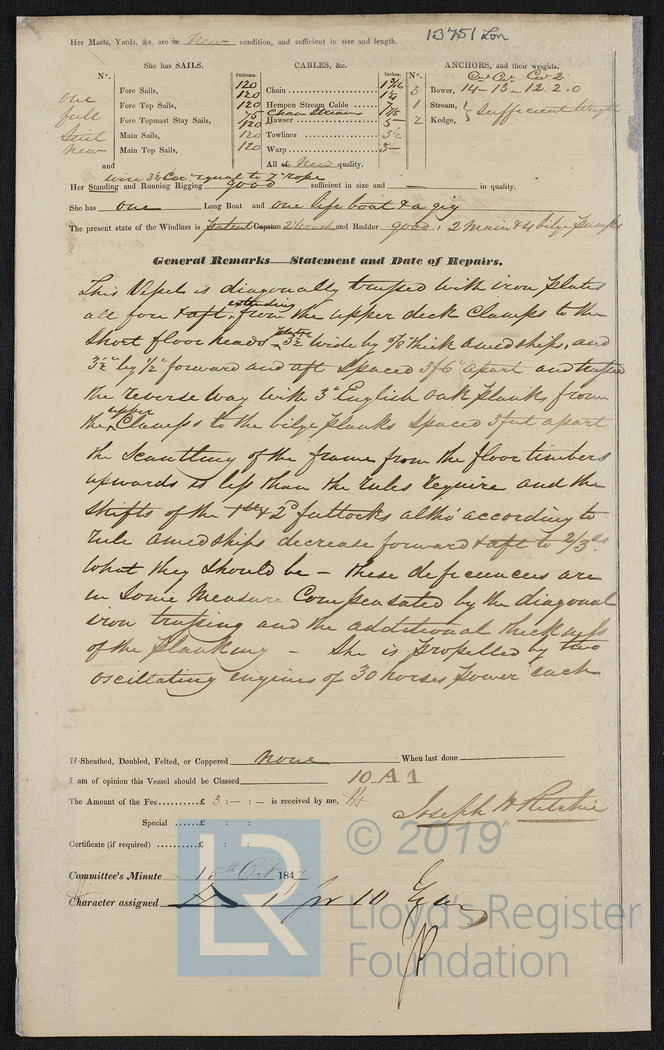 13751 Lon
Her Masts, Yards, &c. are in New condition, and sufficient in size and length.
She has SAILS.
CABLES, &c.
ANCHORS, and their weights.
N°.
Fathoms.
Inches.
N°.
one
full
Suit
New
and
Fore Sails,
Fore Top Sails,
Fore Topmast Stay Sails,
Main Sails,
Main Top Sails,
120 Chain 1 3/16
120
120 Hempen Stream Cable 7
75 Chain Stream
120 Hawser 5
120 Towlines 3½
120 Warp 3
All of New quality.
3 Bower, 14 - 13 - 12.2.0
1 Stream,
2 Kedge,
Sufficient Weight
wire 3½ Cir. equal to 7" rope
Her Standing and Running Rigging good sufficient in size and in quality.
She has one Long Boat and one life boat & a gig
The present state of the Windlass is patent Capstan and Rudder good, 2 Main & 4 bilge pumps
General Remarks—Statement and Date of Repairs.
This Vessel is diagonally trussed with iron plates
all fore & aft, extending from the upper deck Clamps to the
Short floor heads plates 3½ wide by 5/8 thick amidships, and
3½" by ½" forward and aft Spaced 3ft 6" apart and trussed
the reverse way with 3" English oak planks from
the upper Clamps to the bilge planks Spaced 3 feet apart
the Scantling of the frame from the floor timbers
upwards is less than the rules require and the
Shifts of the 1st & 2d futtocks altho' according to
rule amidships decrease forward & aft to 2/3ds
what they should be – these deficiencies are
in some Measure Compensated by the diagonal
iron trussing and the additional thickness
of the planking – She is propelled by two
oscillating engines of 30 horses power each
If Sheathed, Doubled, Felted, or Coppered none When last done
I am of opinion this Vessel should be Classed 10 A 1
The Amount of the Fee £ 3 : – : – is received by me,
Joseph H Ritchie
Special £ : :
Certificate (if required) £ : :
Committee's Minute 15th Oct 1847
Character assigned A 1 for 10 Years
© 2019
LR
Lloyd's Register
Foundation